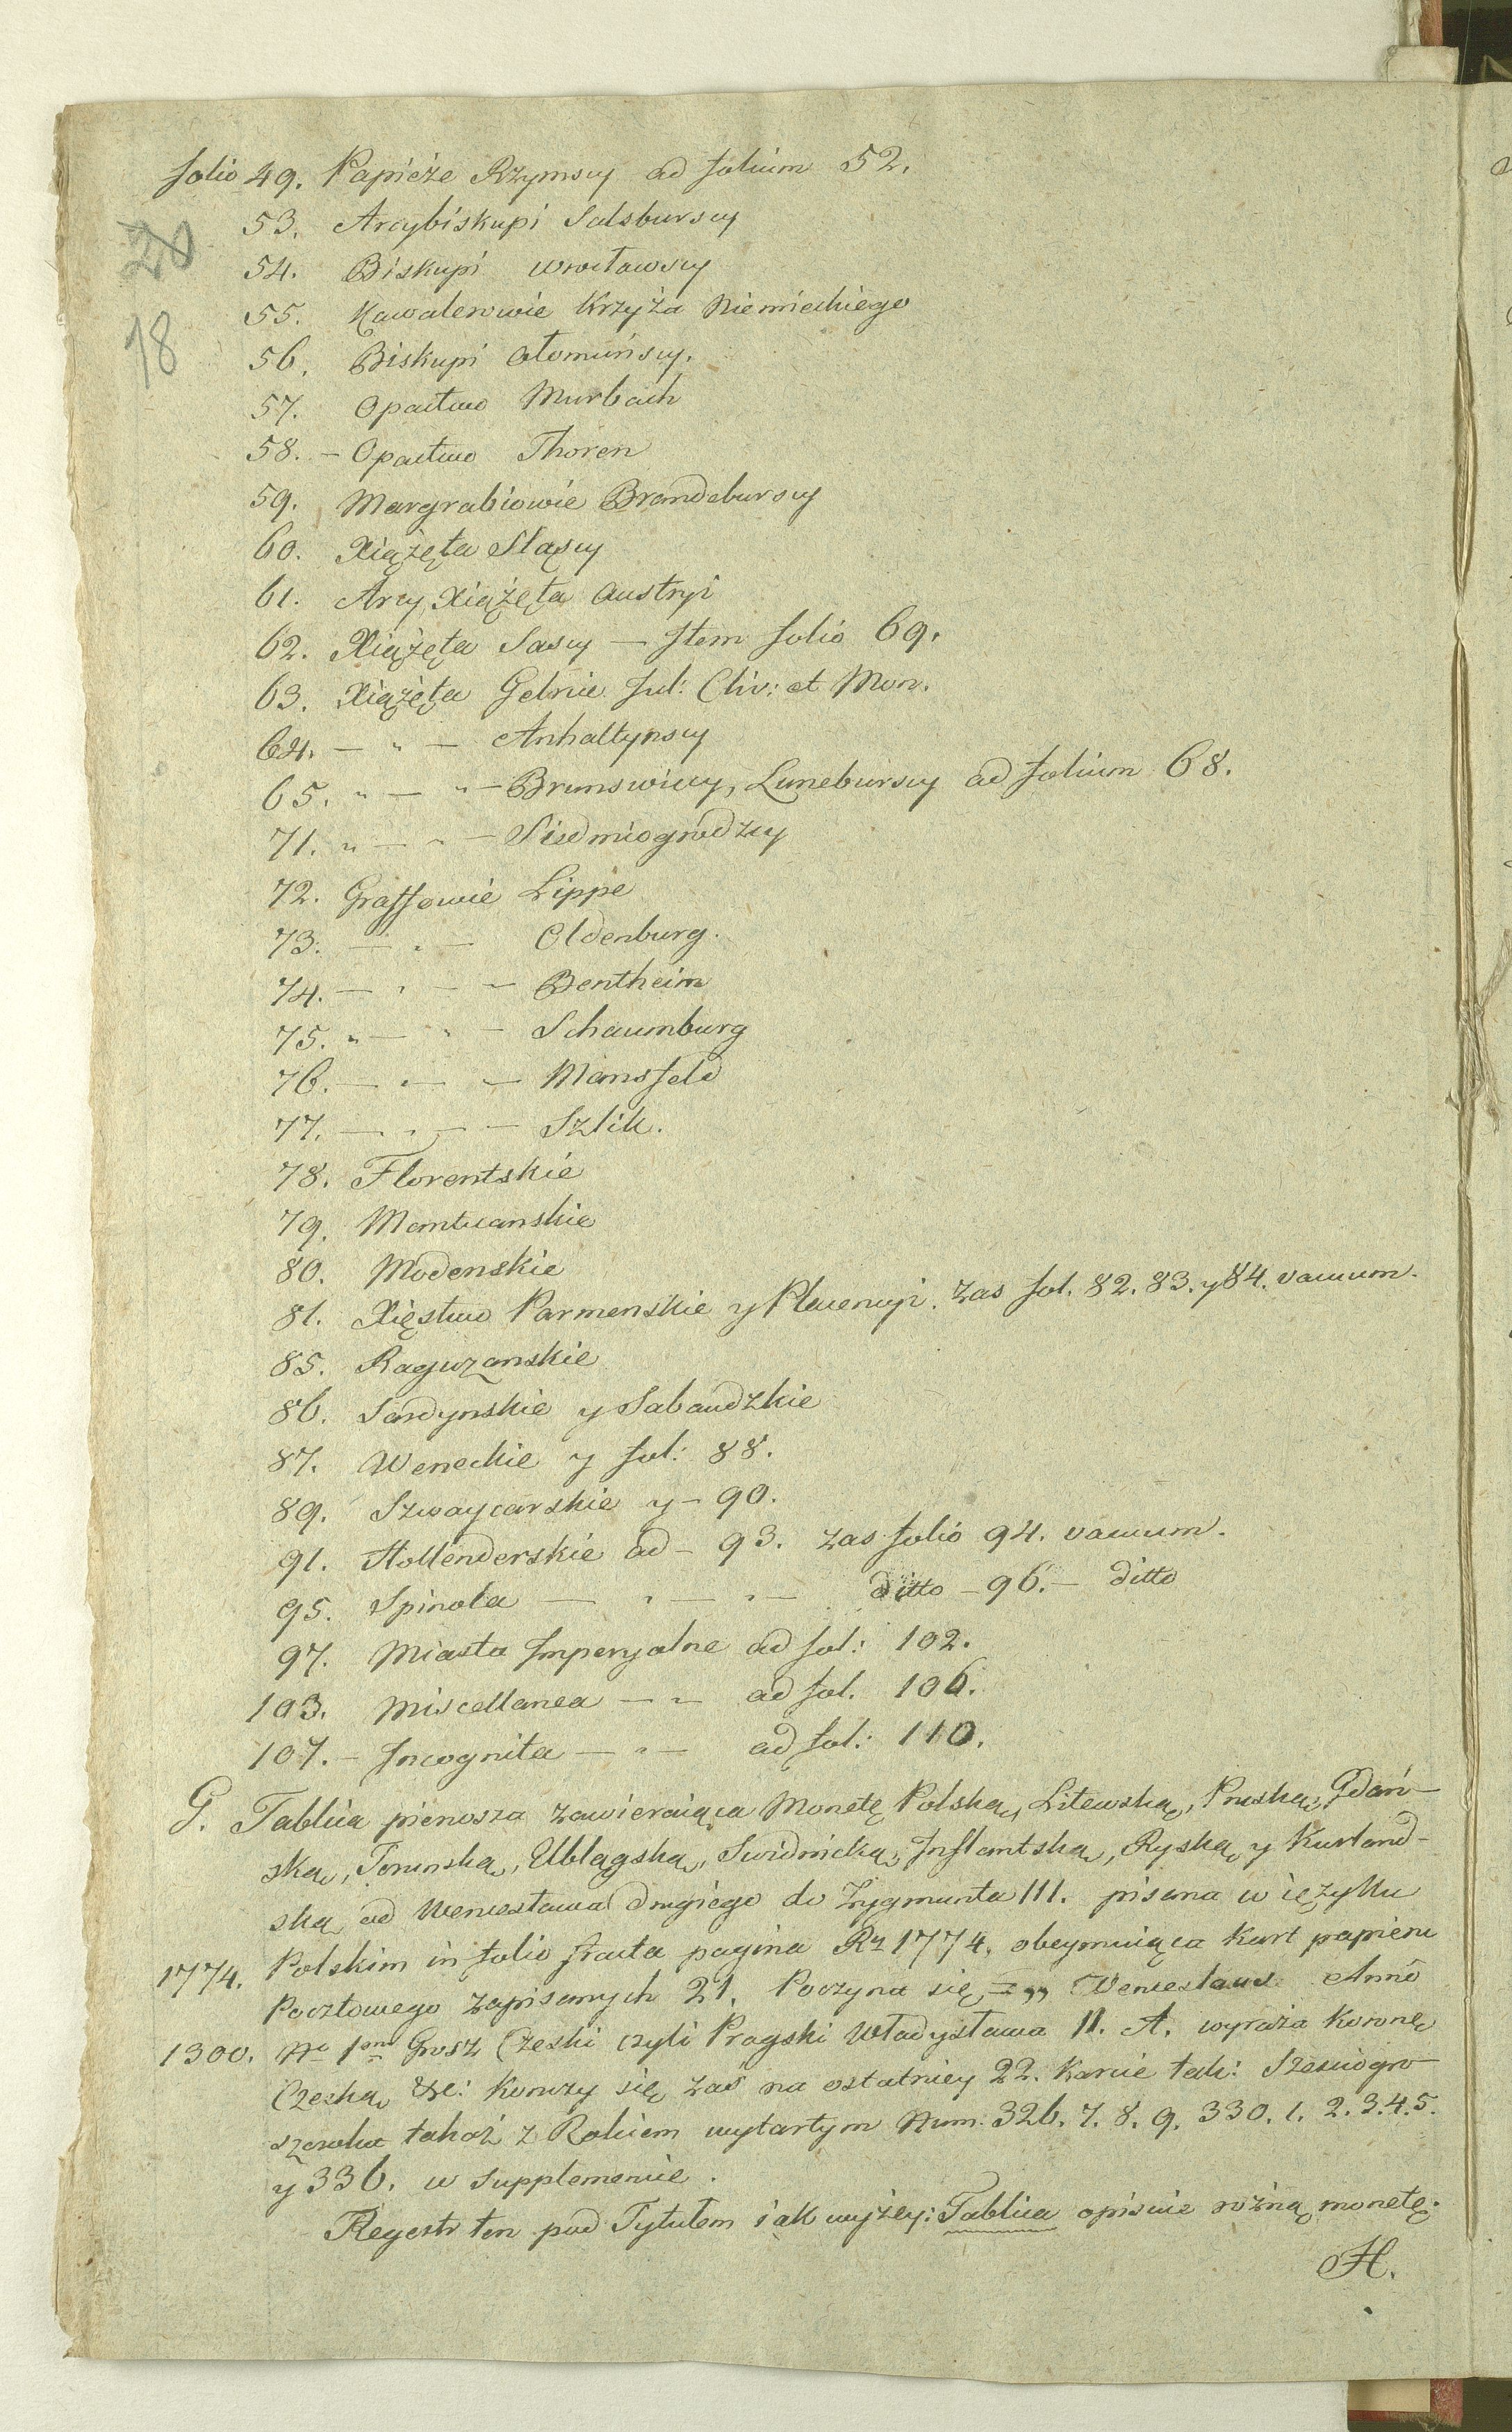 folio 49. Papieże Rzymscy ad folium 52.
20
53. Arcybiskupi Salsburscy
54. Biskupi Wrocławscy
18
55. Kawalerowie Krzyża Niemieckiego
56. Biskupi Ołomuńscy.
57. Opactwo Murbach
58. – Opactwo Thoren
59. Margrabiowie Brandeburscy
60. Xiążęta Sląscy
61. Arcy Xiążęta Austryi
62. Xiążęta Sascy — Item folio 69.
63. Xiążęta Gelrie Jul: Cliv: et Mon.
64. — " — Anhaltynscy
65. " — " — Brunswiccy, Luneburscy ad folium 68.
71. " — " — Siedmiogrodzcy
72. Graffowie Lippe
73. — " — Oldenburg.
74. — " — — Bentheim
75. " — " — Schaumburg
76. — " — — Mansfeld
77. — " — — Szlik.
78. Florentskie
79. Mantuanskie
80. Modenskie
81. Xięstwo Parmenskie y Placencyi. zas fol. 82. 83. y 84. vacuum.
85. Raguzanskie
86. Sardynskie y Sabaudzkie
87. Weneckie y fol: 88.
89. Szwaycarskie y – 90.
91. Hollenderskie ad – 93. zas folio 94. vacuum.
95. Spinola — " — " — ditto – 96. – ditto
97. Miasta Imperyalne ad fol: 102.
103. Miscellanea — " ad fol. 106.
107. – Incognita — " — ad fol: 110.
G. Tablica pierwsza zawieraiąca Monetę Polską, Litewską, Pruską, Gdań-
ską, Torunską, Elblągską, Swidnicką, Inflantską, Ryską y Kurland-
ską od Wencesława drugiego do Zygmunta III. pisana w ięzyku
1774. Polskim in folio fracta pagina Rz 1774. obeymuiąca kart papieru
Pocztowego zapisanych 21. Poczyna się = „ Wenceslaus Anno
1300. No 1mo Grosz Czeski czyli Pragski Władysława II. A. wyraża Koronę
Czeską &c: konczy się zaś na ostatniey 22. karcie tak: Szesciogro-
szowka takaż z Rokiem wytartym Num: 326. 7. 8. 9. 330. 1. 2. 3. 4. 5.
y 336. w supplemencie.
Regestr ten pod Tytułem iak wyżey: Tablica opisuie rożną monetę.
H.